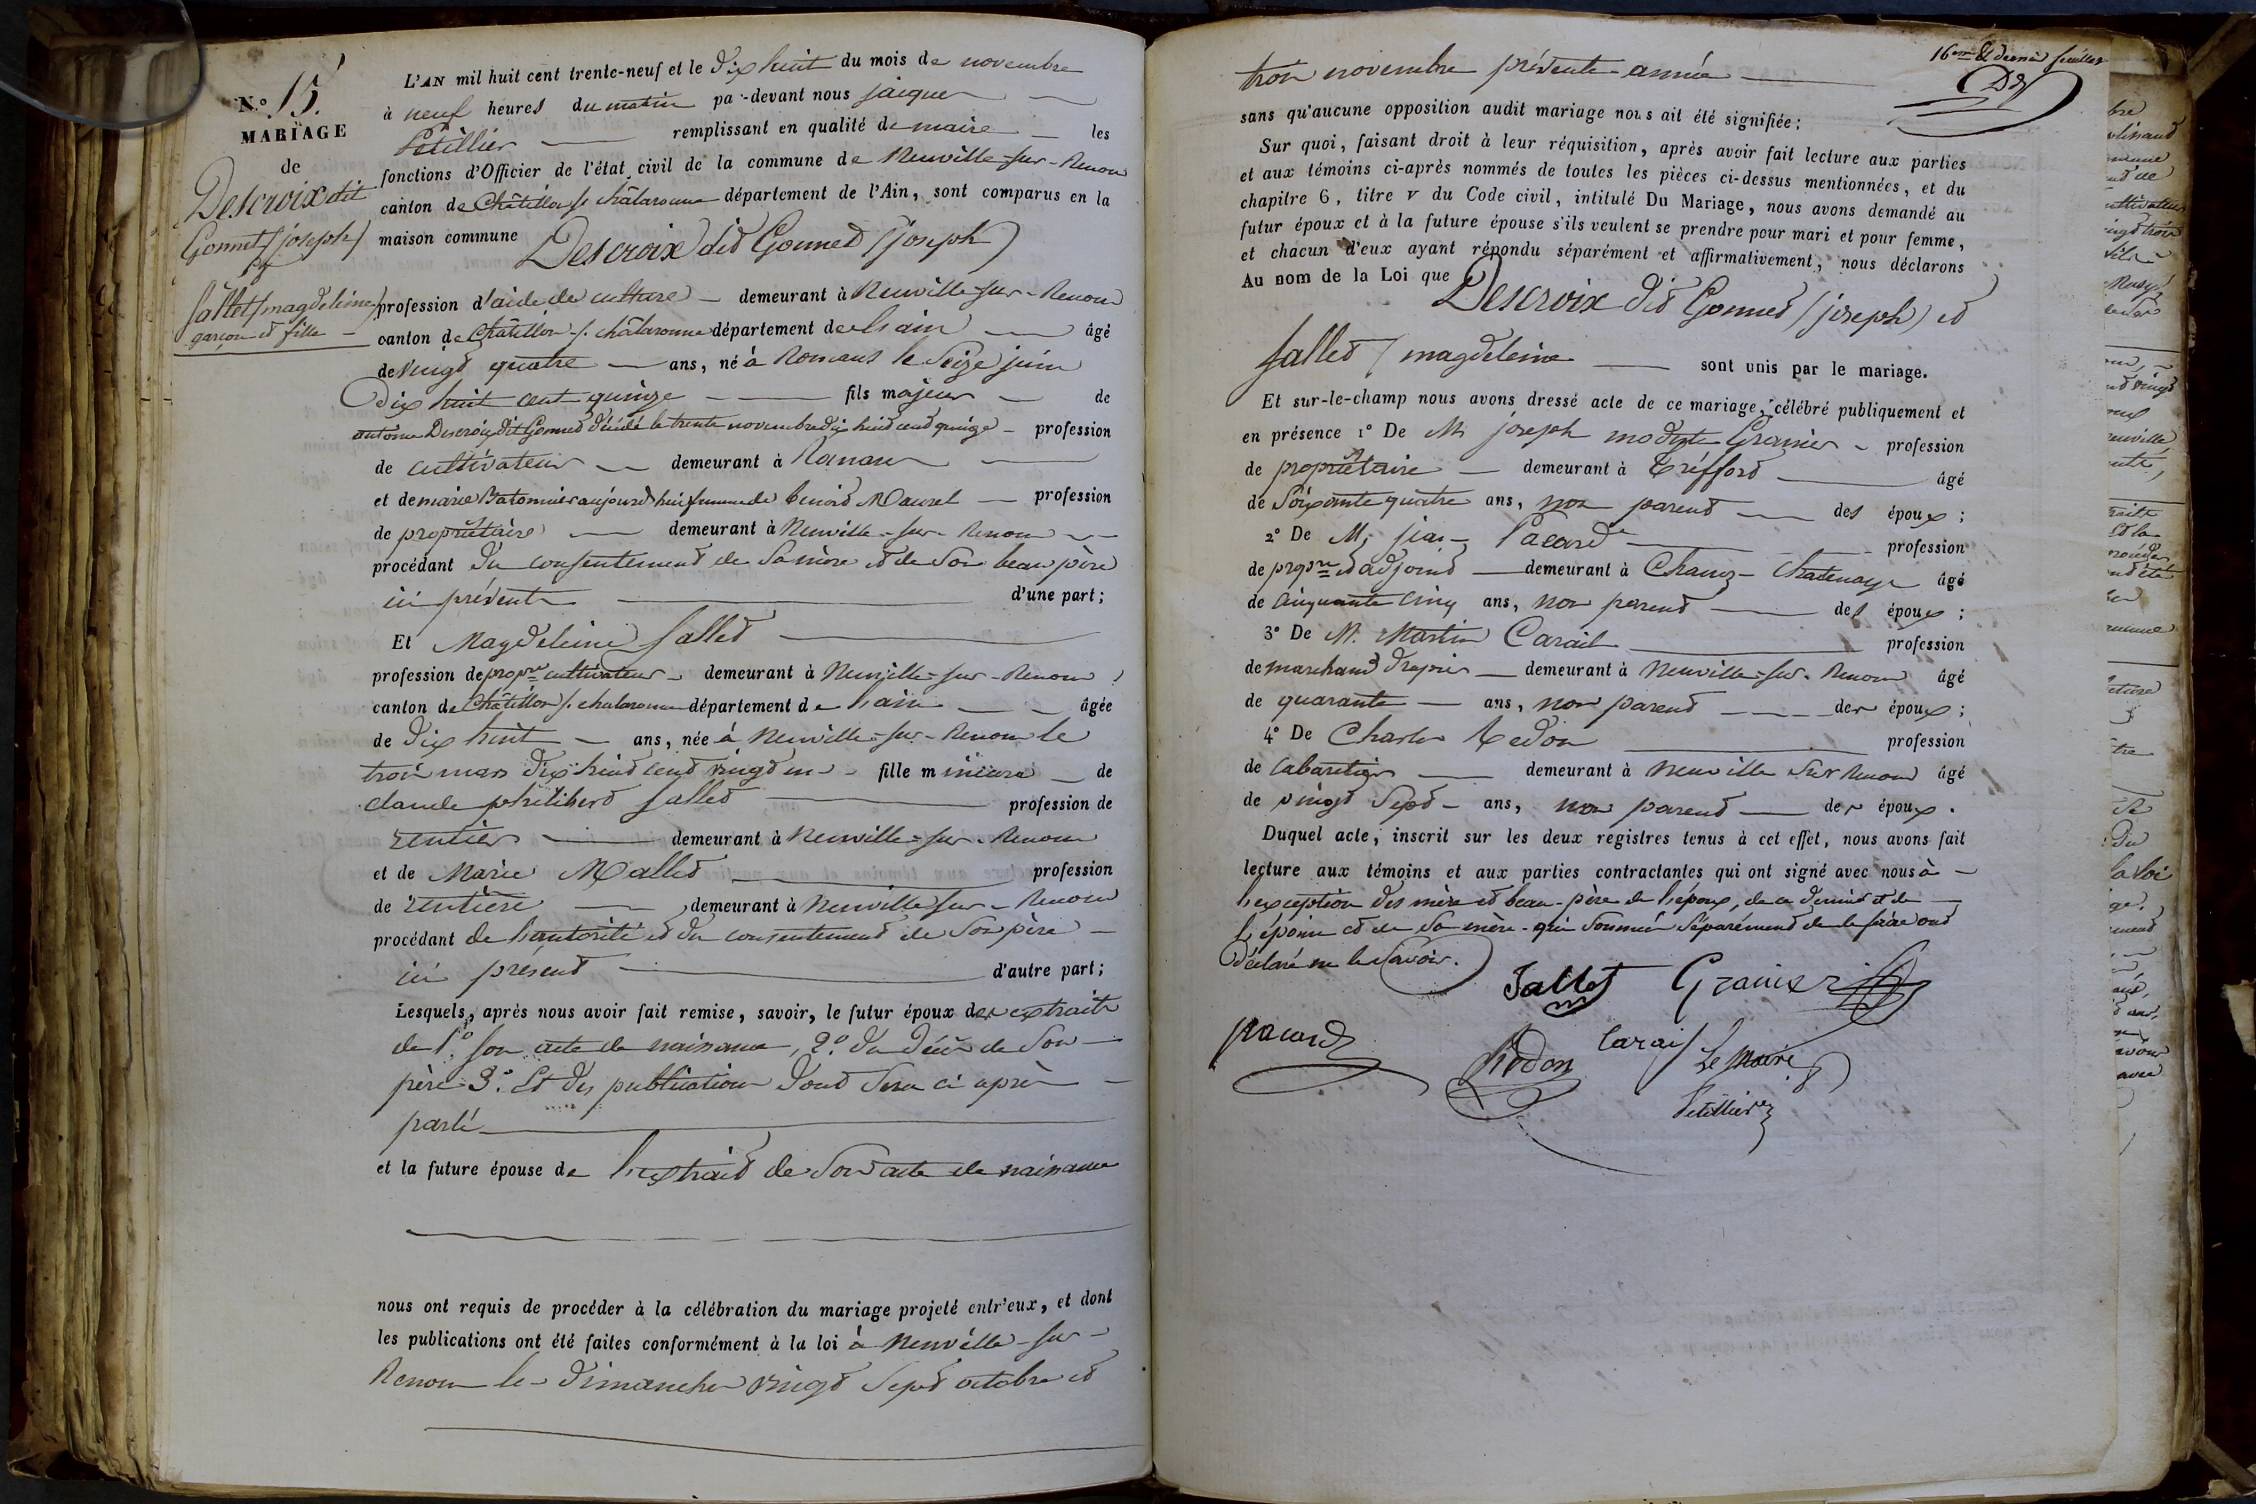 N.° 15.
MARIAGE
de
Descroix dit
Gonnet (joseph)
et
Sallet (magdeleine)
garçon et fille
L'AN mil huit cent trente-neuf et le dix huit du mois de novembre
à neuf heures du matin par-devant nous jacques
Petillier remplissant en qualité de maire les
fonctions d'Officier de l'état civil de la commune de Neuville-sur-Renom
canton de Châtillon s/ châlaronne département de l'Ain, sont comparus en la
maison commune Descroix dit Gonnet (joseph)
profession d'aide de culture demeurant à Neuville-sur-Renom
canton de Châtillon s/ châlaronne département de l'ain âgé
de vingt quatre ans, né à Romans le Seize juin
Dix huit cent quinze fils majeur de
antoine Descroix dit Gonnet décédé le trente novembre dix huit cent quinze profession
de cultivateur demeurant à Romans
et de marie Batonnier aujourd'hui femme de benoit Mauret profession
de propriétaire demeurant à Neuville-sur-Renom
procédant du consentement de Sa mère et de Son beau père
ici présents d'une part;
Et Magdeleine Sallet
profession de propre cultivateur demeurant à Neuville-sur-Renom
canton de Châtillon s/ chalaronne département de l'ain âgée
de dix huit ans, née à Neuville-sur-Renom le
trois mars dix huit cent vingt un fille mineure de
claude philibert Sallet profession de
rentier demeurant à Neuville-sur-Renom
et de Marie Mallet profession
de rentière demeurant à Neuville sur-Renom
procédant de l'autorité et du consentement de Son père
ici présent d'autre part;
Lesquels, après nous avoir fait remise, savoir, le futur époux des extraits
de 1.° Son acte de naissance, 2.° du décès de Son
père 3.° Et des publications dont Sera ci après
parlé
et la future épouse de l'extrait de Son acte de naissance
nous ont requis de procéder à la célébration du mariage projeté entr'eux, et dont
les publications ont été faites conformément à la loi à Neuville-sur-
Renom les dimanches vingt Sept octobre et
16me & dernier feuillet
trois novembre présente année
sans qu'aucune opposition audit mariage nous ait été signifiée;
Sur quoi, faisant droit à leur réquisition, après avoir fait lecture aux parties
et aux témoins ci-après nommés de toutes les pièces ci-dessus mentionnées, et du
chapitre 6, titre v du Code civil, intitulé Du Mariage, nous avons demandé au
futur époux et à la future épouse s'ils veulent se prendre pour mari et pour femme,
et chacun d'eux ayant répondu séparément et affirmativement, nous déclarons
Au nom de la Loi que Descroix dit Gonnet (joseph) et
Sallet (magdeleine sont unis par le mariage.
Et sur-le-champ nous avons dressé acte de ce mariage, célébré publiquement et
en présence 1° De M. joseph modeste Granier profession
de propriétaire demeurant à Treffort âgé
de Soixante quatre ans, non parent des époux;
2° De M. jean Pacard profession
de propre et adjoint demeurant à Chanoz-Chatenay âgé
de Cinquante cinq ans, non parent des époux;
3° De M. Martin Carail profession
de marchand drapier demeurant à Neuville-sur-Renom âgé
de quarante ans, non parent des époux;
4° De Charles Redon profession
de Cabaretier demeurant à Neuville Sur Renom âgé
de vingt Sept ans, non parent des époux.
Duquel acte, inscrit sur les deux registres tenus à cet effet, nous avons fait
lecture aux témoins et aux parties contractantes qui ont signé avec nous à
l'exception des mère et beau-père de l'époux, de ce dernier et de
l'épouse et de Sa mère qui Sommés Séparément de le faire ont
Déclaré ne le Savoir.
Sallet Granier
pacard Redon Carail Le Maire
Petillier